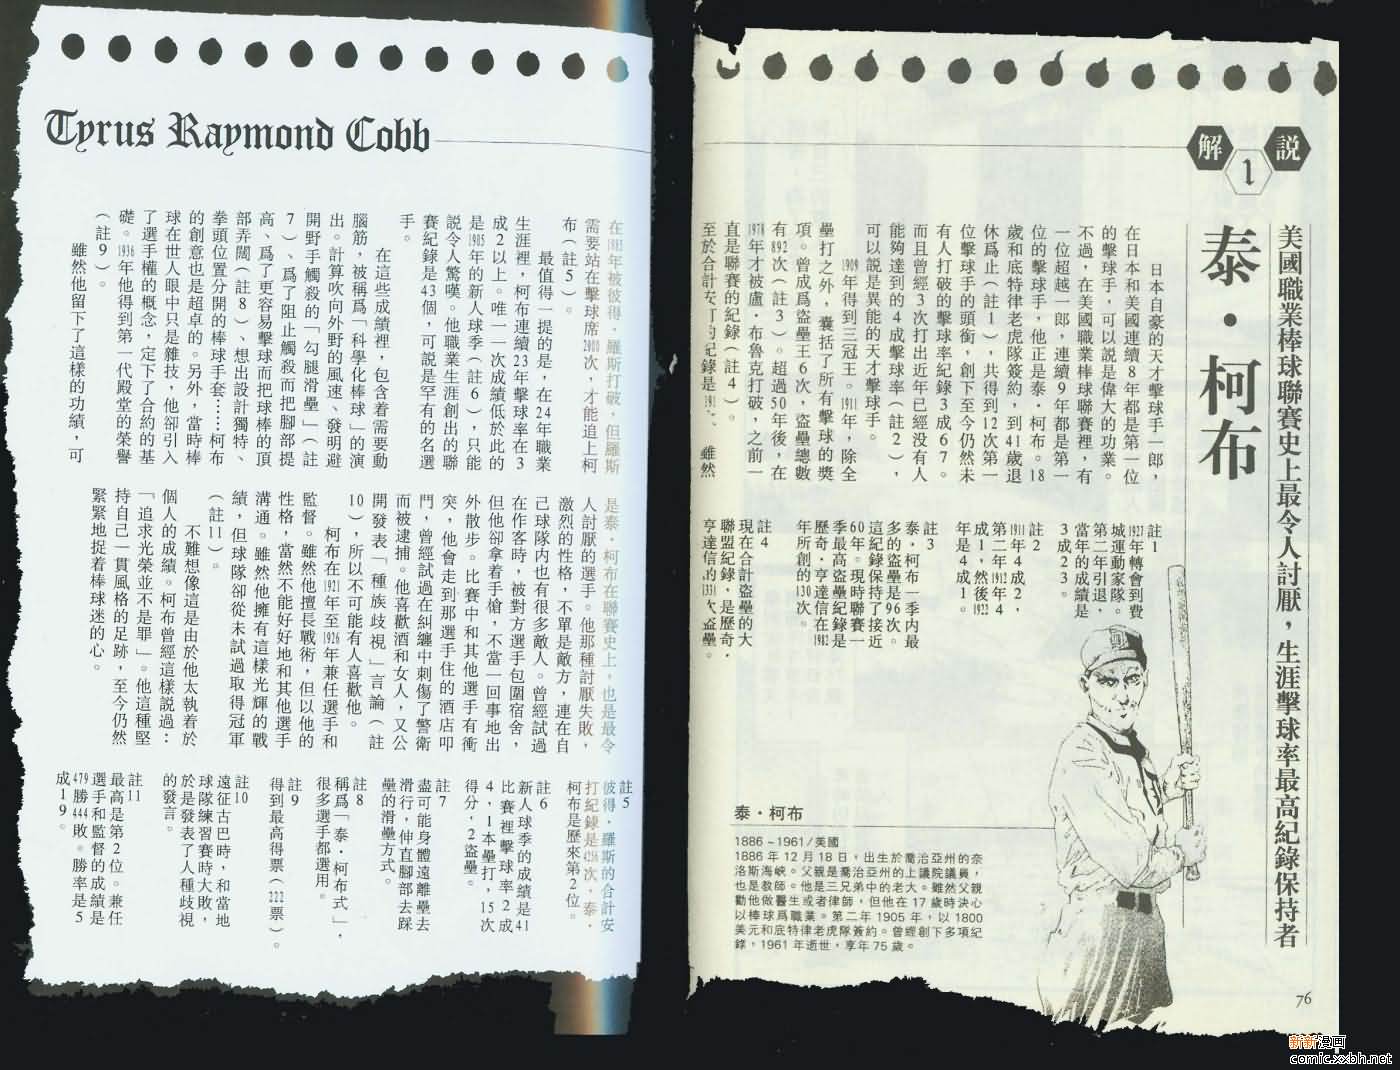 解
1
説
美國職業棒球聯賽史上最令人討厭，生涯擊球率最高紀錄保持者
泰・柯布
日本自豪的天才擊球手一郎，
在日本和美國連續8年都是第一位
的擊球手，可以說是偉大的功業。
不過，在美國職業棒球聯賽裡，有
一位超越一郎，連續9年都是第一
位的擊球手，他正是泰・柯布。18
歲和底特律老虎隊簽約，到41歲退
休爲止（註1），共得到12次第一
位擊球手的頭銜，創下至今仍然未
有人打破的擊球率紀錄3成67。
而且曾經3次打出近年已經没有人
能夠達到的4成擊球率（註2），
可以說是異能的天才擊球手。
1909年得到三冠王。1911年，除全
壘打之外，囊括了所有擊球的獎
項。曾成爲盜壘王6次，盜壘總數
有892次（註3）。超過50年後，在
1978年才被盧・布魯克打破，之前一
直是聯賽的紀錄（註4）。
至於合計安打的紀錄是191、 雖然
註1
1927年轉會到費
城運動家隊。
第二年引退，
當年的成績是
3成23。
註2
1911年4成2，
第二年1912年4
成1，然後1922
年是4成1。
註3
泰・柯布一季內最
多的盜壘是96次。
這紀錄保持了接近
60年。現時聯賽一
季最高盜壘紀錄是
歷奇・亨達信在1982
年所創的130次。
註4
現在合計盜壘的大
聯盟紀錄，是歷奇・
亨達信的1331次盜壘。
泰・柯布
1886～1961/美國
1886年12月18日，出生於喬治亞州的奈
洛斯海峽。父親是喬治亞州的上議院議員，
也是教師。他是三兄弟中的老大。雖然父親
勸他做醫生或者律師，但他在17歲時決心
以棒球爲職業。第二年1905年，以1800
美元和底特律老虎隊簽約。曾經創下多項紀
錄，1961年逝世，享年75歲。
76
Tyrus Raymond Cobb
在1985年被彼得・羅斯打破，但羅斯
需要站在擊球席2800次，才能追上柯
布（註5）。
最值得一提的是，在24年職業
生涯裡，柯布連續23年擊球率在3
成2以上。唯一一次成績低於此的
是1905年的新人球季（註6），只能
説令人驚嘆。他職業生涯創出的聯
賽紀錄是43個，可說是罕有的名選
手。
在這些成績裡，包含着需要動
腦筋，被稱爲「科學化棒球」的演
出。計算吹向外野的風速、發明避
開野手觸殺的「勾腿滑壘」（註
7）、爲了阻止觸殺而把腳部提
高、爲了更容易擊球而把球棒的頂
部弄闊（註8）、想出設計獨特、
拳頭位置分開的棒球手套……柯布
的創意也是超卓的。另外，當時棒
球在世人眼中只是雜技，他卻引入
了選手權的概念，定下了合約的基
礎。1936年他得到第一代殿堂的榮譽
（註9）。
雖然他留下了這樣的功績，可
是泰・柯布在聯賽史上，也是最令
人討厭的選手。他那種討厭失敗，
激烈的性格，不單是敵方，連在自
己球隊内也有很多敵人。曾經試過
在作客時，被對方選手包圍宿舍，
但他卻拿着手槍，不當一回事地出
外散步。比賽中和其他選手有衝
突，他會走到那選手住的酒店叩
門，曾經試過在糾纏中刺傷了警衛
而被逮捕。他喜歡酒和女人，又公
開發表「種族歧視」言論（註
10），所以不可能有人喜歡他。
柯布在1921年至1926年兼任選手和
監督。雖然他擅長戰術，但以他的
性格，當然不能好好地和其他選手
溝通。雖然他擁有這樣光輝的戰
績，但球隊卻從未試過取得冠軍
（註11）。
不難想像這是由於他太執着於
個人的成績。柯布曾經這樣説過：
「追求光榮並不是罪」。他這種堅
持自己一貫風格的足跡，至今仍然
緊緊地捉着棒球迷的心。
註5
彼得・羅斯的合計安
打紀錄是4256次，泰・
柯布是歷來第2位。
註6
新人球季的成績是41
比賽裡擊球率2成
4，1本壘打，15次
得分，2盜壘。
註7
盡可能身體遠離壘去
滑行，伸直腳部去踩
壘的滑壘方式。
註8
稱爲「泰・柯布式」，
很多選手都選用。
註9
得到最高得票（222票）。
註10
遠征古巴時，和當地
球隊練習賽時大敗，
於是發表了人種歧視
的發言。
註11
最高是第2位。兼任
選手和監督的成績是
479勝444敗。勝率是5
成19。
新新漫画
comic.xxbh.net